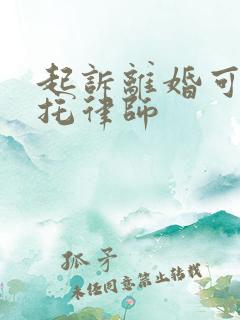 起訴離婚可
托律師
孤矛
未经同意禁止转载